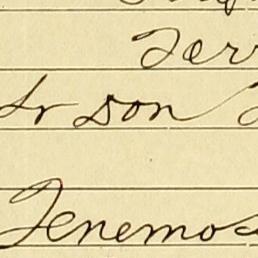 Terr
tr son
Tenemo